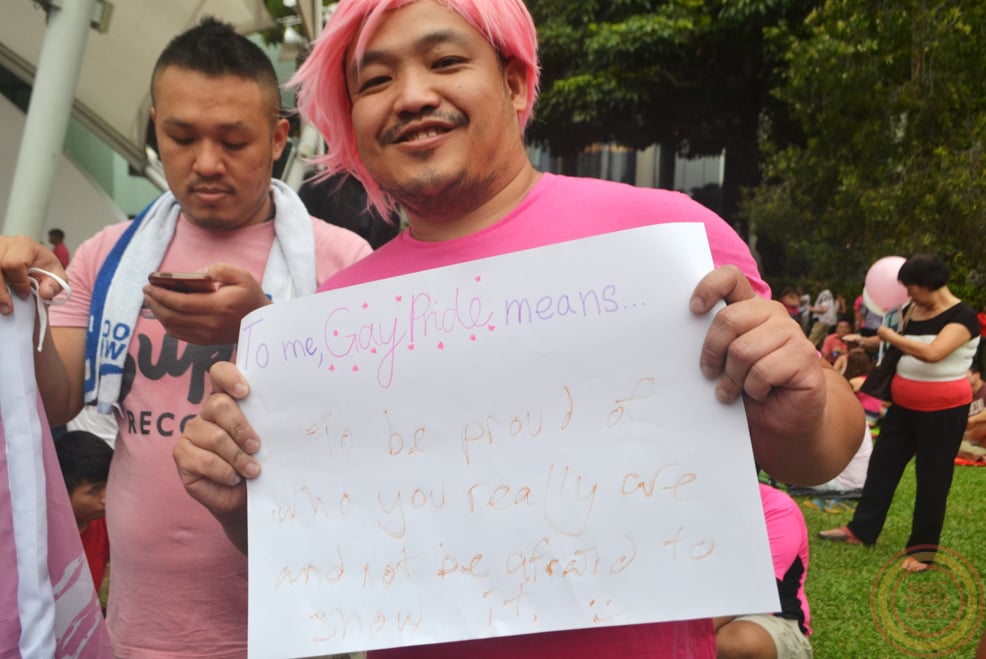 To me, Gay Pride means...
To be proud of
who you really are
and not be afraid to
show it. :)
RECO